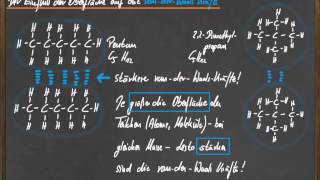 Der Einfluss der Oberfläche auf die van-der-Waals Kräfte
Pentan
C₅H₁₂
2,2-Dimethyl-
propan
C₅H₁₂
stärkere van-der-Waals-Kräfte!
Je größer die Oberfläche der
Teilchen (Atome, Moleküle) - bei
gleicher Masse - desto stärker
sind die van-der-Waals Kräfte!